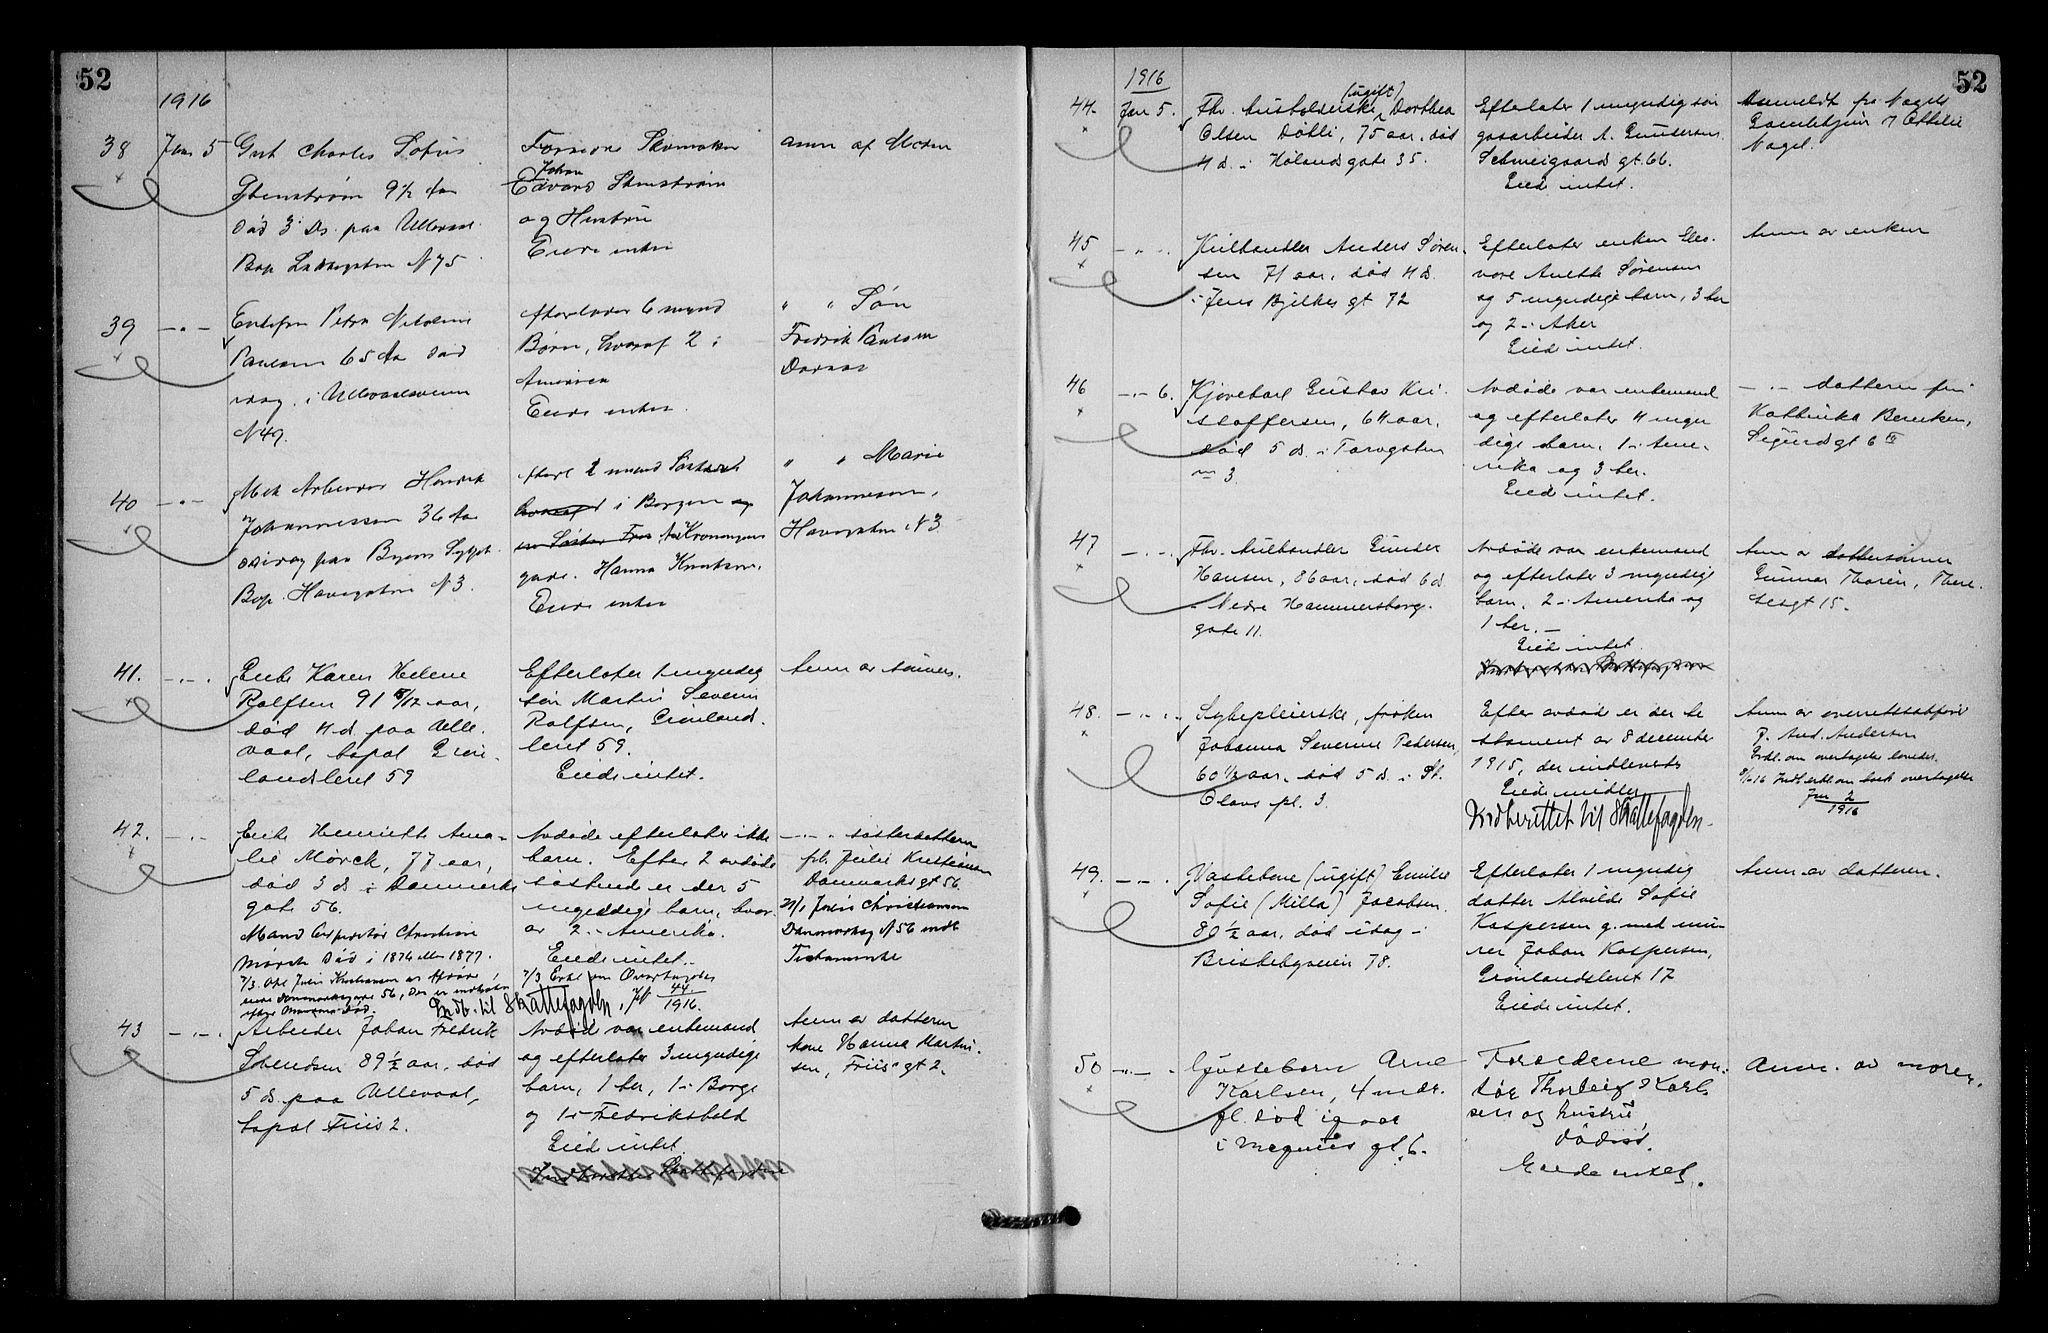 52
1916
38 Jan 5 Gut Charles Sofus
Stenstrøm 9½ Aar
død 3 Ds. paa Ullevaal
Bop. N 75
Forældre Skomaker
Johan
Edvard Stenstrøm
og Hustru
Eiede intet
anm af Moren
39 — " — Enkefru Petra Nikoline
Paulsen 65 Aar død
idag i Ullevaalsveien
N 49.
efterlader 6 mynd
Børn, hvoraf 2 i
Amerika
Eiede intet.
" " Søn
Fredrik Paulsen
40 — " — Mek Arbeider Henrik
Johannessen 36 Aar
død idag paa Byens Sygeh.
Bop. Havegaten N 3.
efterl 2 mynd Søskende
i Bergen
gade. Hanna Knutsen.
Eiede intet
" " Marie
Johannessen,
Havegaten N 3
41. — " — Enke Karen Helene
Rolfsen 91 8/12 aar,
død 4 d. paa Ulle-
vaal, bopal Grøn-
landsleret 59
Efterlater 1 myndig
søn Martin Severin
Rolfsen, Grønlands-
leret 59.
Eiede intet.
Anm av sønnen.
42. — " — Enke Henriette Ama-
lie Mørck, 77 aar,
død 3 ds i Danmarks
gate 56.
Mand Christian
Mørch død i 1876 eller 1877.
Avdøde efterlater ikke
barn. Efter 2 avdøde
søskende er der 5
myndige barn, hvor-
av 2 i Amerika.
Eiede intet.
7/3 Erkl om Overtagelse
44
1916.
Indb. til Skattefogden,
— " — søsterdatteren
frk. Julie Kristiansen
Danmarks gt 56.
Julie Christiansen
Danmarksg N 56 indl
Testamente
43 — " — Arbeider Johan Fredrik
Svendsen 89½ aar, død
5 d. paa Ullevaal,
bopal Friis 2.
Avdøde var enkemand
og efterlater 3 myndige
barn, 1 her, 1 i Borge
og 1 i Fredrikshald
Eied intet.
Anm av datteren
kone Hanna Martin-
sen, Friis' gt 2.
52
1916
44. Jan 5. Fhv. husholderske (ugift) Dorthea
Olsen Døhli, 75 aar, død
4 d. i Hølandsgate 35.
Efterlater 1 myndig søn
gasarbeider A. Gundersen
Schweigaards gt. 66.
Eied intet.
Anmeldt fra Nagels
Nagel.
45 — " — Kulhandler Anders Søren-
sen 71 aar, død 4 d.
i Jens Bjelkes gt 72
Efterlater enken Eleo-
nore Anette Sørensen
og 5 myndige barn, 3 her
og 2 i Aker
Eied intet.
Anm av enken
46 — " — 6. Kjørekarl Gustav Kri-
stoffersen, 64 aar,
død 5 d. i Torvgaten
nr 3.
Avdøde var enkemand
og efterlater 4 myn-
dige barn, 1 i Ame-
rika og 3 her.
Eied intet.
— " — datteren fru
Kathinka Berentsen,
Sigurds gt 6 IV
47 — " — Fhv. kulhandler Gunder
Hansen, 86 aar, død 6 d.
i Nedre Hammersborg-
gate 11.
Avdøde var enkemand
og efterlater 3 myndige
barn, 2 i Amerika og
1 her. —
Eied intet.
Anm av dattersønnen
Gunnar Thorén, There-
sesgt 15.
48. — " — Sykepleierske, frøken
Johanna Severine Pedersen,
60 1/2 aar, død 5 d. i St.
Olavs pl. 3.
Efter avdøde er der te-
stament av 8 december
1915, der indleverts
Eiede midler
Indberettet til Skattefogden
Anm av overretssakfører
P. And. Andersen
Erkl. om overtagelse loves.
Indl. erkl. om boets overtagelse
Jnr 2
1916
49. — " — Vaskekone (ugift) Emilie
Sofie (Milla) Jacobsen
80 ½ aar, død idag i
Bustebyveien 78.
Efterlater 1 myndig
datter Alvilde Sofie
Kaspersen g. med mu-
rer Johan Kaspersen,
Grønlandsleret 17
Eiede intet.
Anm av datteren.
50 — " — Gjøttebarn Arne
Karlsen, 4 mdr.
gl. død igaar
i Magnus gt. 6.
Forældrene mon-
tør Thorleif Karl-
sen og hustru
Eiede intet.
Anm. av moren.